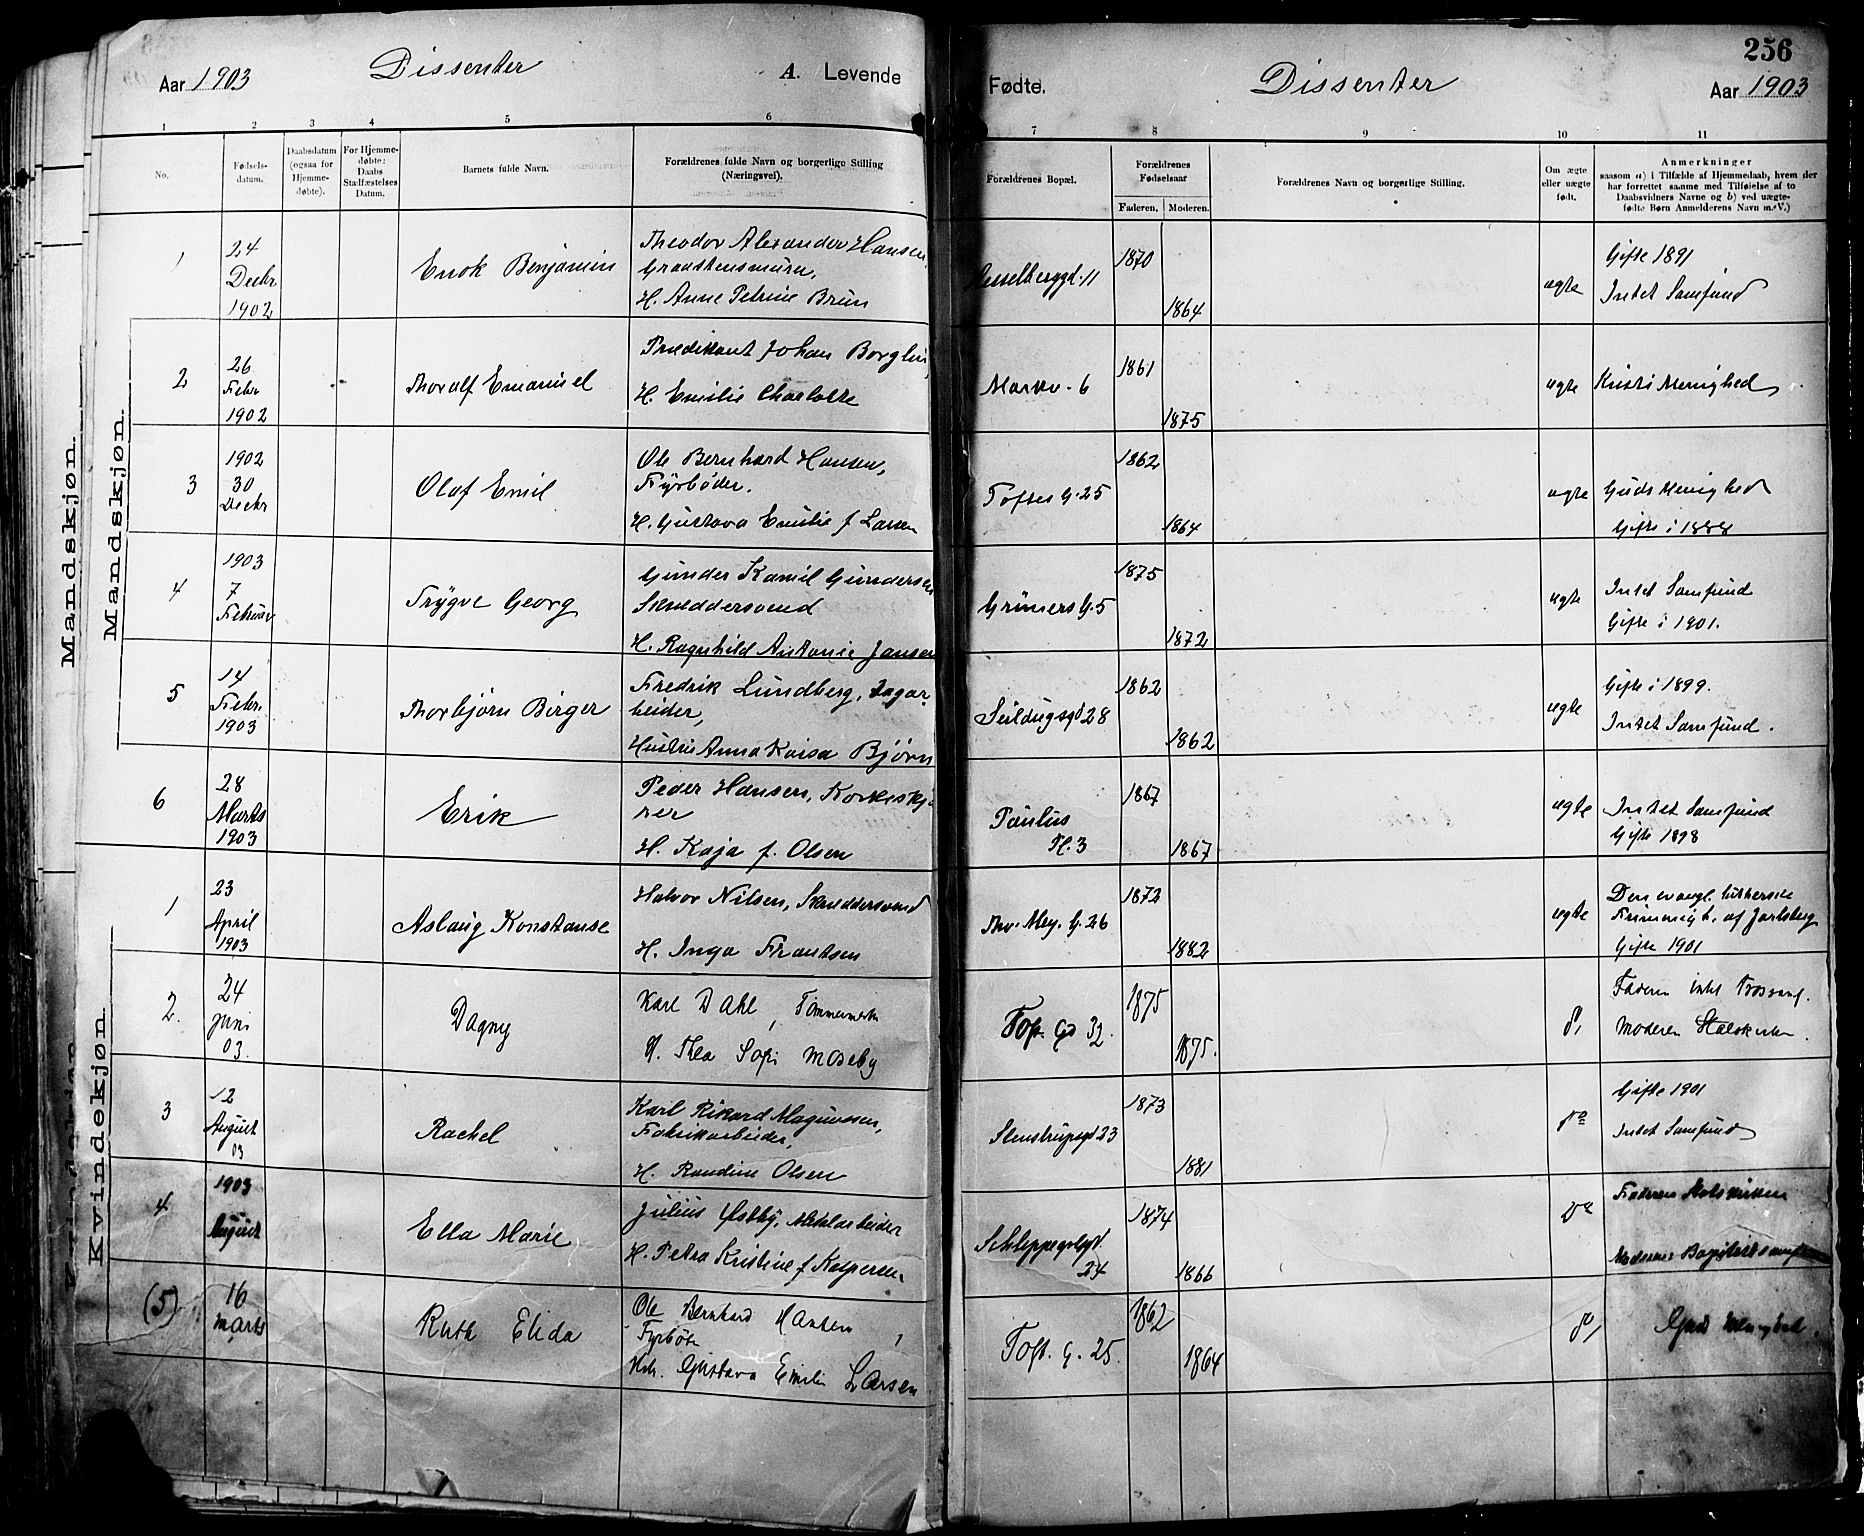 256
Aar 1903 Dissenter A. Levende
Fødte. Dissenter Aar 1903
1 2 3 4 5 6
7 8 9 10 11
No.
Fødsels-
datum.
Daabsdatum
(ogsaa for
Hjemme-
døbte).
For Hjemme-
døbte:
Daabs
Stadfæstelses
Datum.
Barnets fulde Navn.
Forældrenes fulde Navn og borgerlige Stilling
(Næringsvei).
Forældrenes Bopæl.
Forældrenes
Fødselsaar
Faderen. Moderen.
Forældrenes Navn og borgerlige Stilling.
Om ægte
eller uægte
født.
Anmerkninger
saasom a) i Tilfælde af Hjemmedaab, hvem der
har forrettet samme med Tilføielse af to
Daabsvidners Navne og b) ved uægte-
fødte Børn Anmelderens Navn m.V.)
Mandskjøn.
Mandskjøn.
1
24
Decbr
1902
Enok Benjamin
Theodor Alexander Hansen,
Graastensmurer,
H. Anne Petrine Brun
Hesselberggd. 11
1870
1864
ægte
Gifte 1891
Intet Samfund
2
26
Febr
1902
Thoralf Emanuel
Prædikant Johan Borglin,
H. Emilie Charlotte
Markv. 6
1861
1875
ægte
Kristi Menighed
3
1902
30
Decbr
Olaf Emil
Ole Bernhard Hansen,
Fyrbøder.
H. Gustava Emilie f Larsen
Toftes G. 25
1862
1864
ægte
Guds Menighed
Gifte i 1888
4
1903
7
Februar
Trygve Georg
Gunder Kamil Gundersen
Skræddersvend
H. Ragnhild Antonie Jansen
Grüners G. 5
1875
1872
ægte
Intet Samfund
Gifte i 1901.
5
14
Febr.
1903
Thorbjørn Birger
Fredrik Lundberg, Dagar-
beider,
Hustru Anna Kaisa Bjørn
Seildugsgd 28
1862
1862
ægte
Gifte i 1899.
Intet Samfund.
6
28
Marts
1903
Erik
Peder Hansen, Korkeskjæ-
rer
H. Kaja f. Olsen
Paulus
Pl. 3
1867
1867
ægte
Intet Samfund
Gifte 1898
Kvindekjøn.
1
23
April
1903
Aslaug Konstanse
Halvor Nilsen, Skræddersvend
H. Inga Frantsen
Thv. Mey. G. 26
1872
1882
ægte
Den evangl. lutherske
Frimenigh. af Jarlsberg
Gifte 1901
2.
24
juni
03.
Dagny
Karl Dahl, Tømmermand
H. Thea Sofi Moseby
Toft. Gd 32.
1875
1875.
do,
Faderen intet Trossamf.
Moderen Statskirken.
3
12
August
03
Rachel
Karl Rikard Magnussen,
Fabrikarbeider,
H. Randine Olsen
Stenstrupsgd 23
1873
1881
do
Gifte 1901
Intet Samfund
4
1903
August
Ella Marie
Julius Østby, Metalarbeider
H. Petra Kristine f Kaspersen
Schleppegrelsgd.
24
1874
1866
do
Faderen Statskirken
Moderen Baptistsamf
(5)
16
Marts
Ruth Elida
Ole Bernhard Hansen,
Fyrbøter
Hst. Gustava Emilie Larsen
Toft. G. 25.
1862
1864
do,
Guds Menighed.